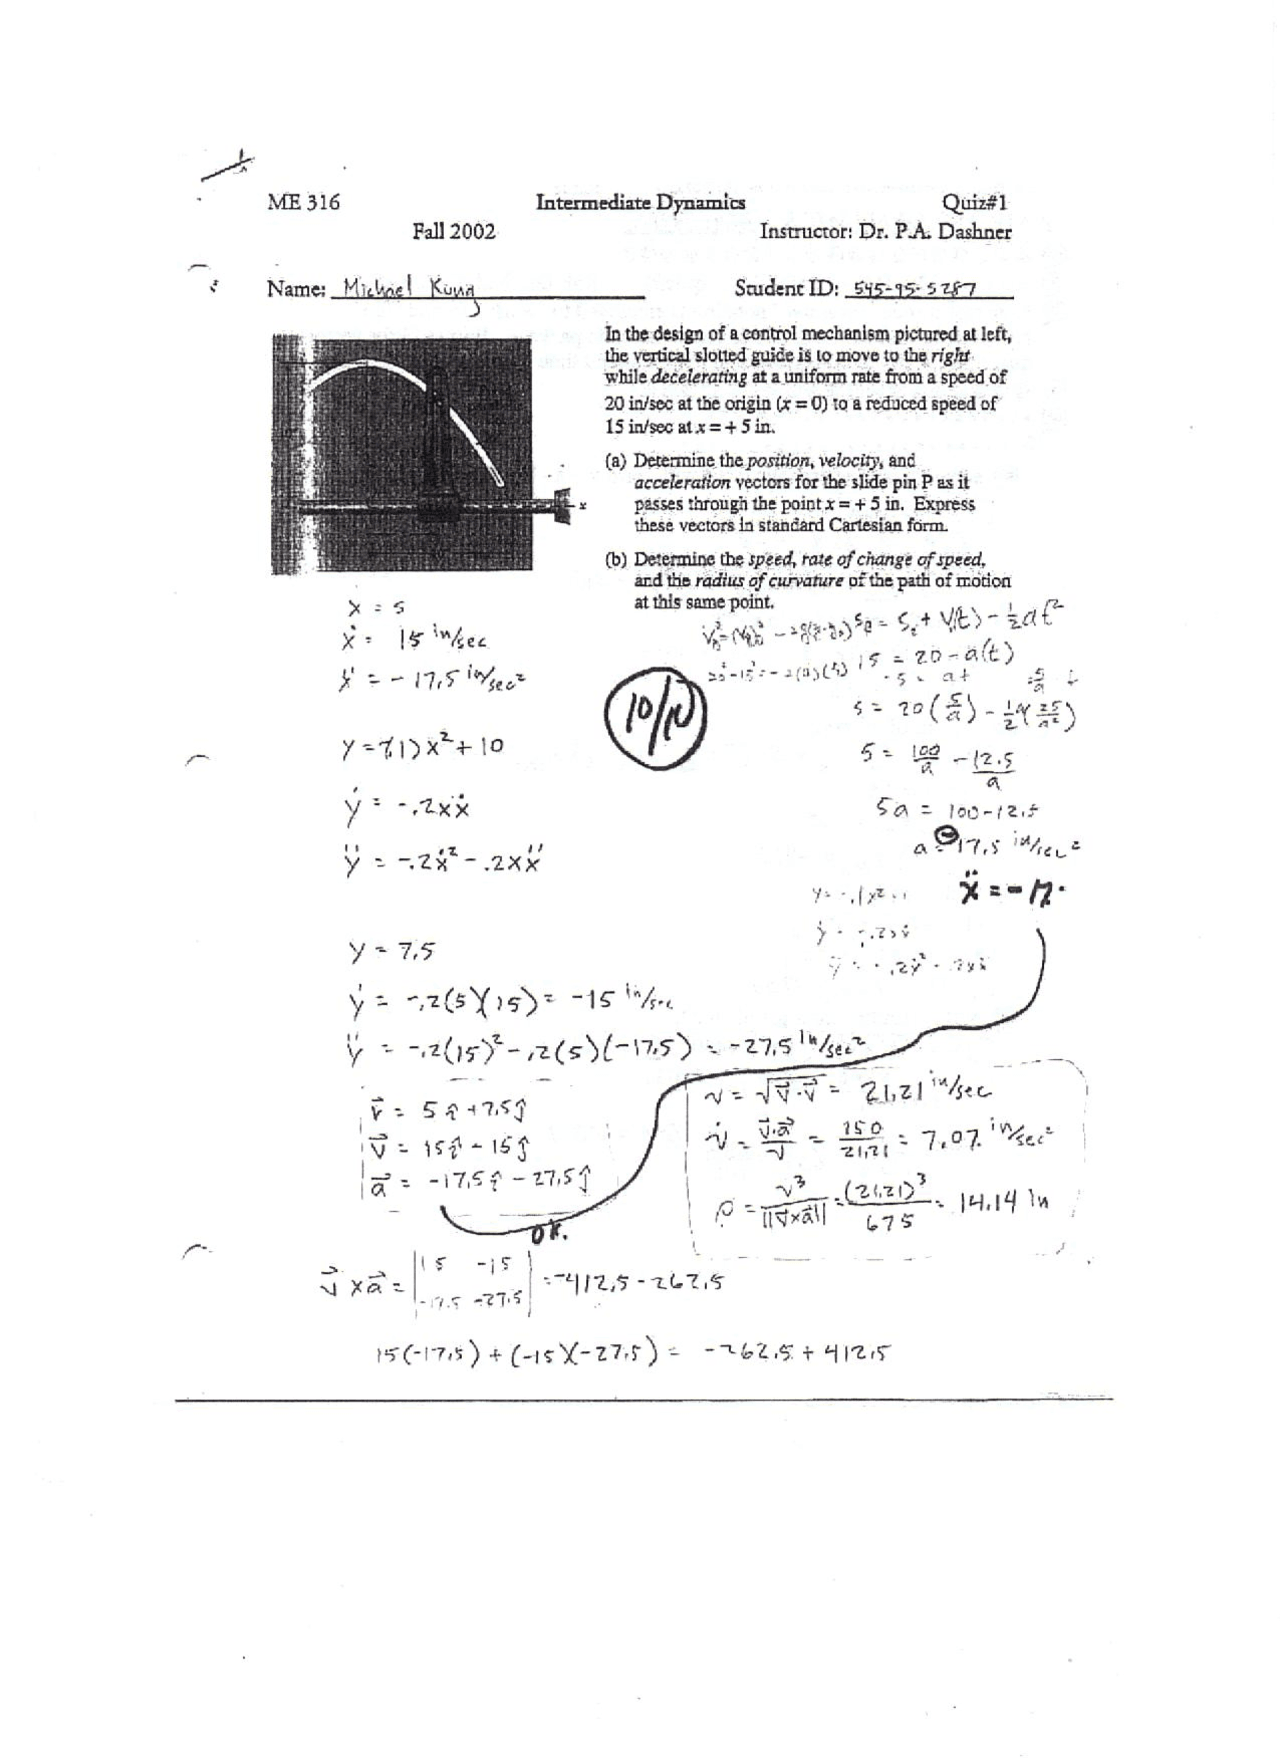 ME 316 Intermediate Dynamics Quiz#1
Fall 2002 Instructor: Dr. P.A. Dashner
Name: Michael Kung Student ID: 545-95-5287
In the design of a control mechanism pictured at left,
the vertical slotted guide is to move to the right
while decelerating at a uniform rate from a speed of
20 in/sec at the origin (x = 0) to a reduced speed of
15 in/sec at x = + 5 in.
(a) Determine the position, velocity, and
acceleration vectors for the slide pin P as it
passes through the point x = + 5 in. Express
these vectors in standard Cartesian form.
(b) Determine the speed, rate of change of speed,
and the radius of curvature of the path of motion
at this same point.
x
x = 5
ẋ = 15 in/sec
ẍ = -17.5 in/sec²
y = -(.1)x² + 10
ẏ = -.2xẋ
ÿ = -.2ẋ² - .2xẍ
y = 7.5
ẏ = -.2(5)(15) = -15 in/sec
ÿ = -.2(15)² - .2(5)(-17.5) = -27.5 in/sec²
r⃗ = 5î + 7.5ĵ
v⃗ = 15î - 15ĵ
a⃗ = -17.5î - 27.5ĵ
OK.
10/10
S₀ + V(t) - ½at²
15 = 20 - a(t)
-5 = at
5 = 20(5/a) - ½a(25/a²)
5 = 100/a - 12.5/a
5a = 100 - 12.5
a = 17.5 in/sec²
ẍ = -17.
v = √v⃗·v⃗ = 21.21 in/sec
v̇ = v⃗·a⃗/v = 150/21.21 = 7.07 in/sec²
ρ = v³/||v⃗×a⃗|| = (21.21)³/675 = 14.14 in
v⃗ × a⃗ = | 15 -15 | = -412.5 - 262.5
| -17.5 -27.5 |
15(-17.5) + (-15)(-27.5) = -262.5 + 412.5